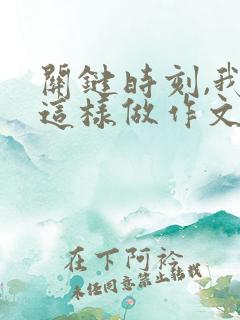 關鍵時刻,我
這樣做作文
在下阿裕
未经同意禁止转载